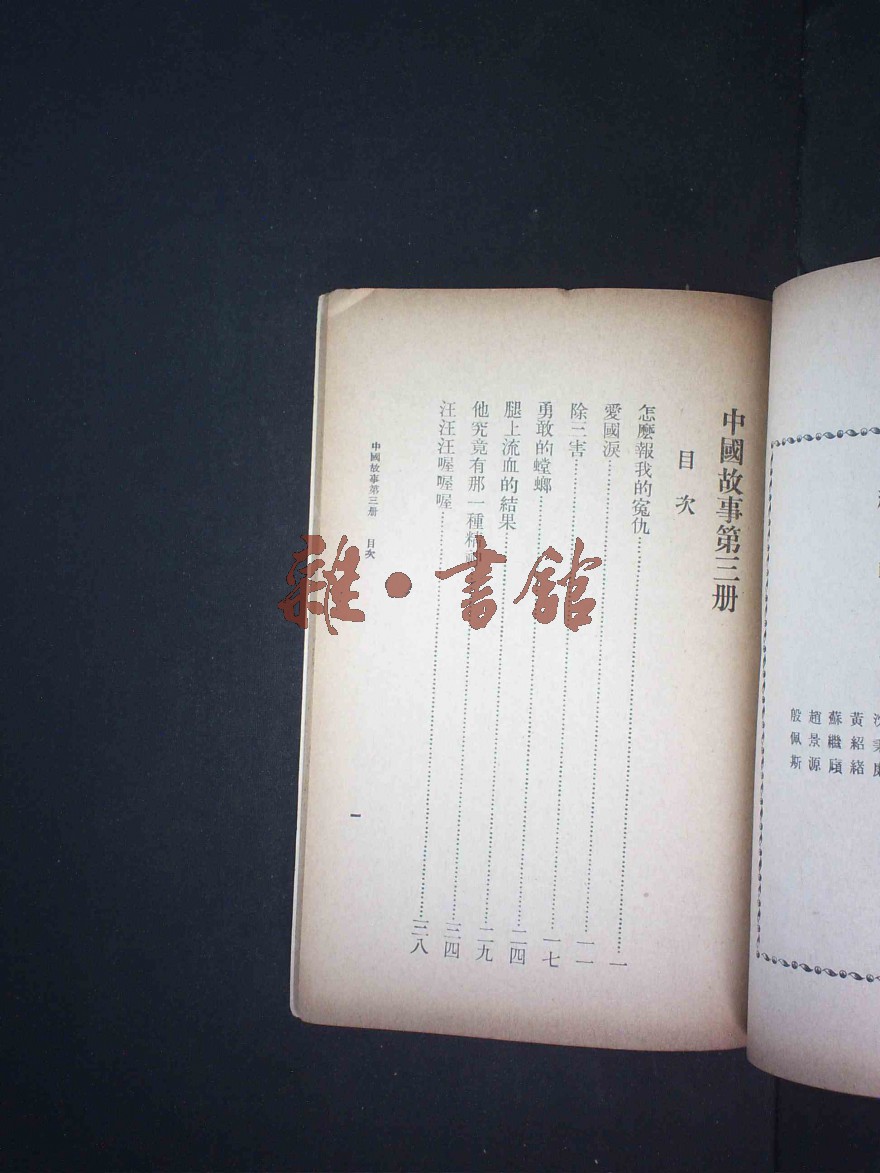 黃紹緒
蘇繼廎
趙景源
殷佩斯
中國故事第三册
目次
怎麼報我的寃仇……一
愛國淚……一一
除三害……一七
勇敢的螳螂……二四
腿上流血的結果……二九
他究竟有那一種精神……三四
汪汪汪喔喔喔……三八
中國故事第三册 目次
一
雜·書館